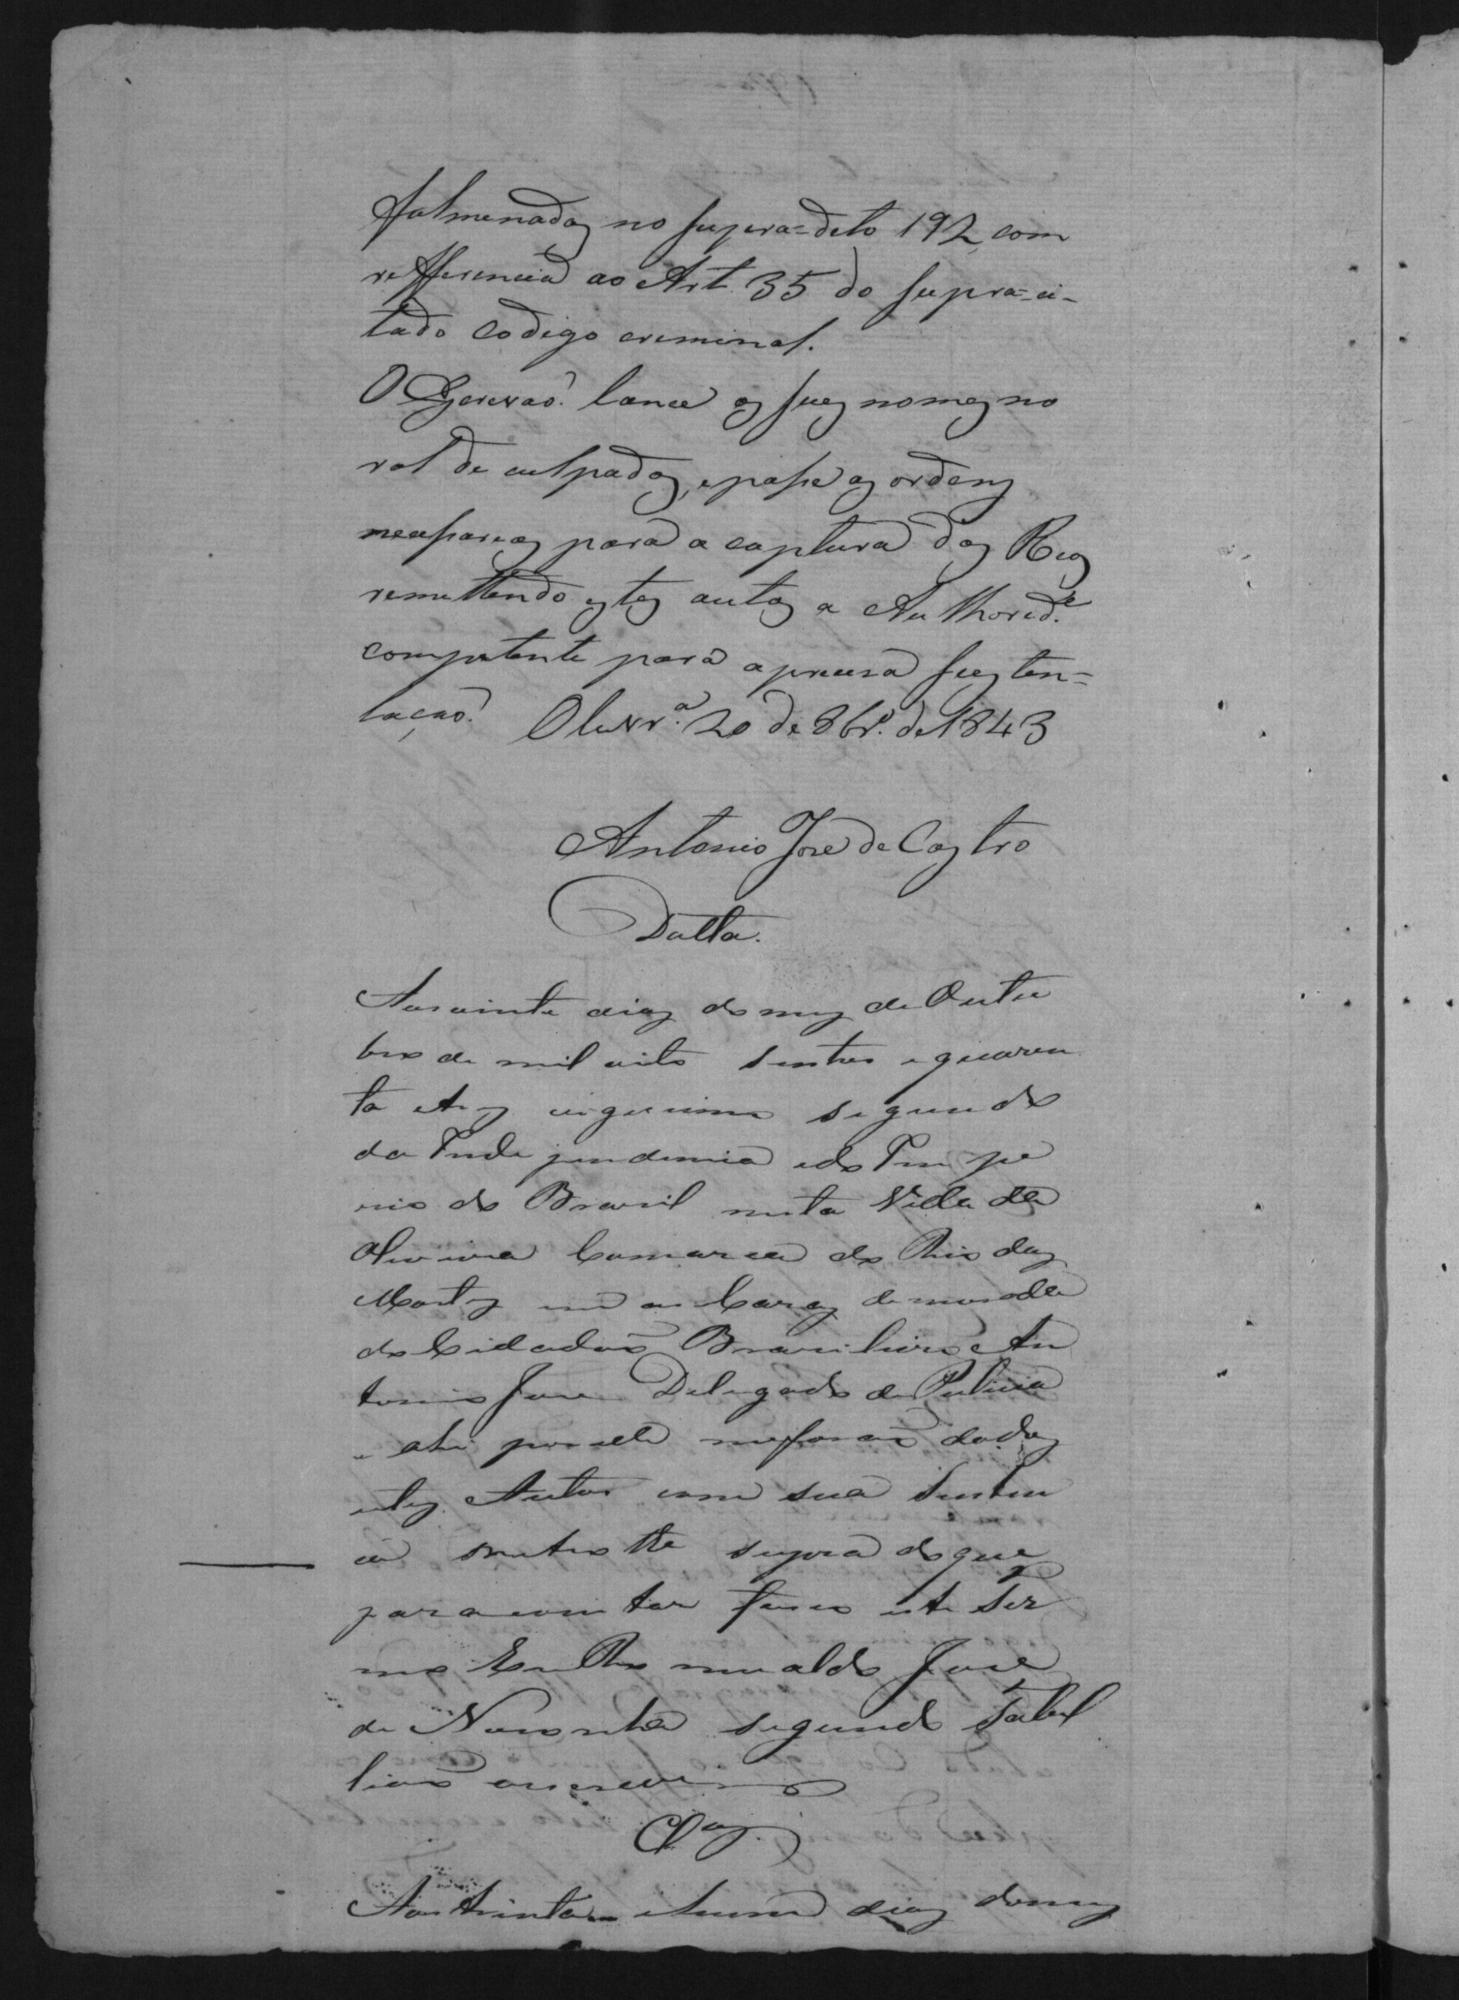 fulmenadas no supra=dito 192, com
refferencia ao Art. 35 do supra=ci-
tado codigo criminal.
O Escrivaõ lance os seus nomes no
rol de culpados, e passe as ordens
necessarias para a captura dos Reos
remettendo estes autos a Authorid.e
competente para a precisa susten=
taçaõ. Oliveir.a 20 de 8br.o de 1843
Antonio José de Castro
Datta.
Aos vinte dias do mes de Outu
bro de mil oito sentos e quaren
ta e tres vigecimo segundo
da Independencia e do Impe
rio do Brasil nesta Villa de
Oliveira Comarca do Rio das
Mortes em as Casas de morada
do Cidadaõ Brasileiro An
tonio Jose Delegado de Policia
e ahi por elle me foraõ dados
estes Autos com sua Senten
ca retro supra do que
para constar faso este Ter
mo Eu José
de Noronha segundo Tabel
liaõ o escrevi
Clas.
Aos trinta e hum dias do mes